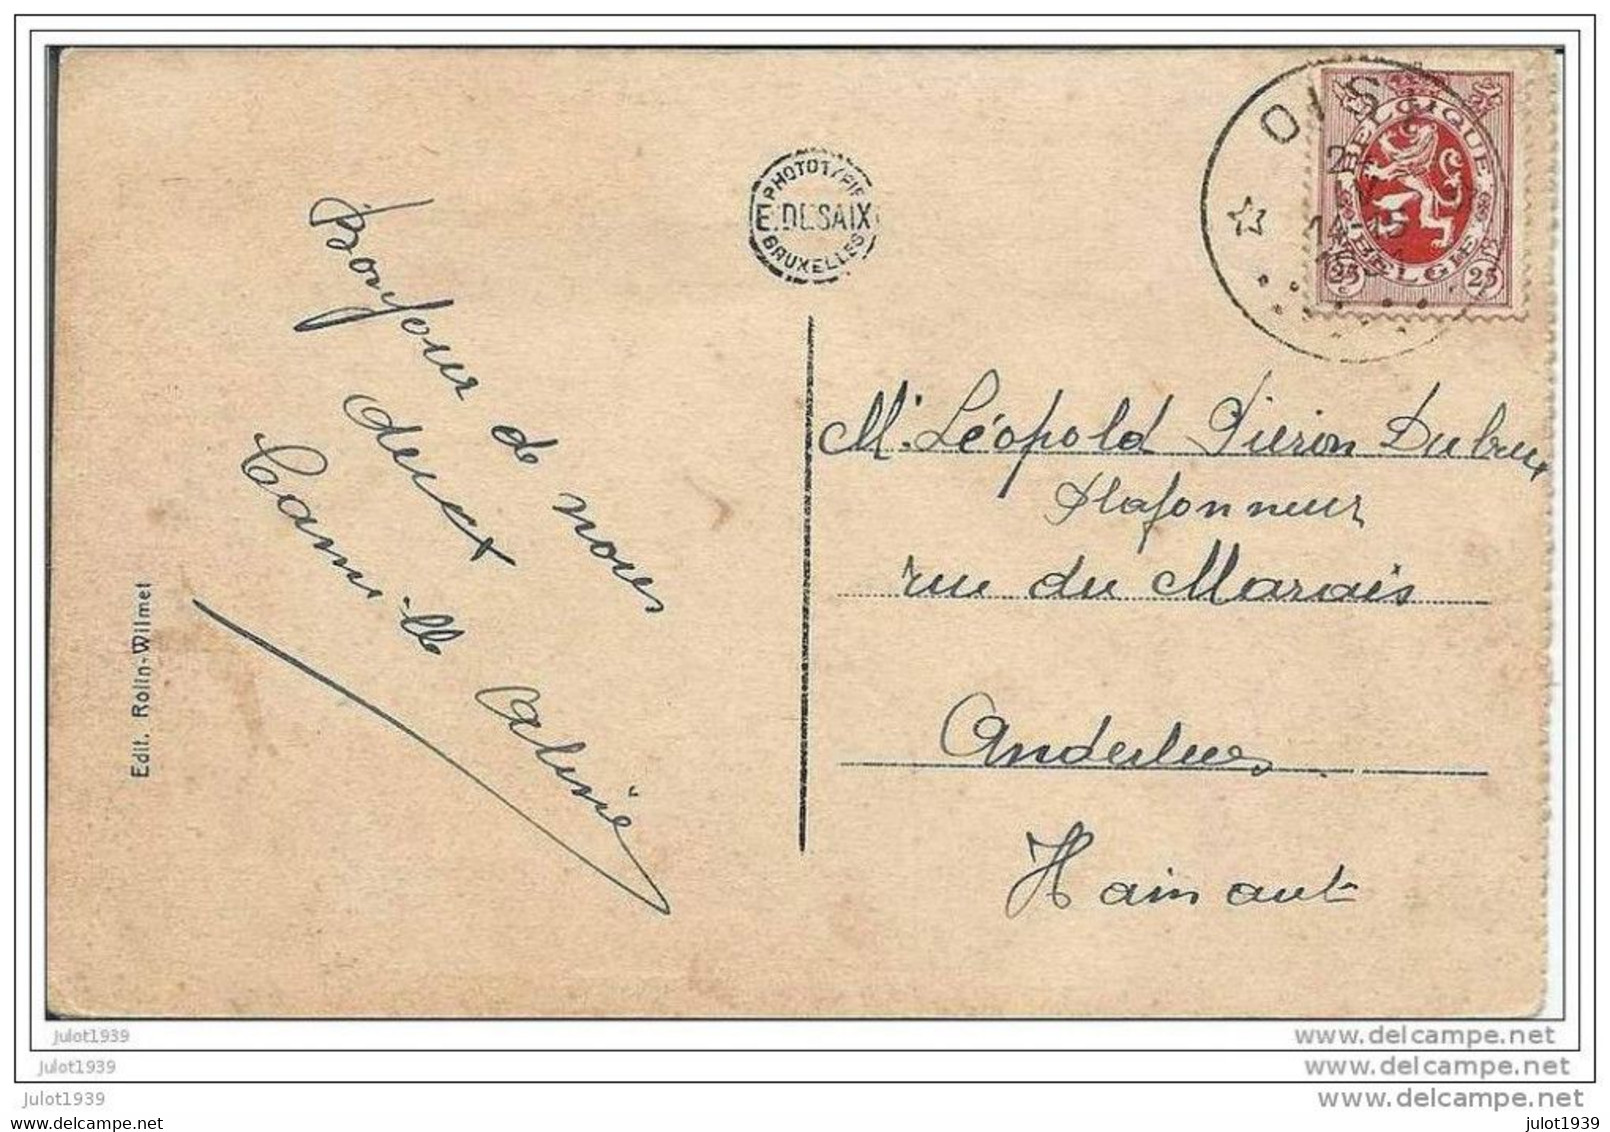 Bonjour de nous
deux
Camille Alvine
Edit. Rolin-Wilmet
PHOTOTYPIE
E. DESAIX
BRUXELLES
OIS
14
BELGIQUE
BELGIE
25 25
Mr. Léopold Piéron Dubrux
Plafonneur
rue du Marais
Anderlues
Hainaut
julot1939
www.delcampe.net
julot1939
www.delcampe.net
julot1939
www.delcampe.net
julot1939
julot1939